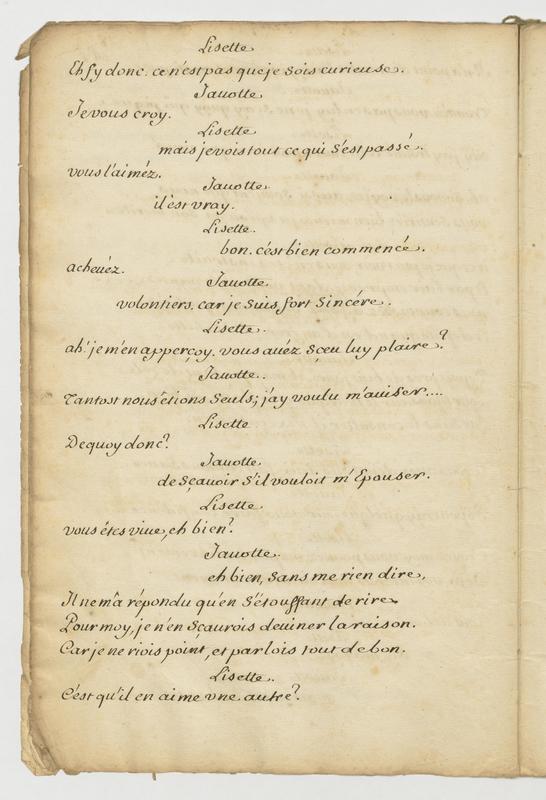 Lisette
Eh fy donc. ce n'est pas que je sois curieuse.
Javotte
Je vous croy.
Lisette
mais je vois tout ce qui s'est passé.
vous l'aiméz.
Javotte.
il est vray.
Lisette.
bon. c'ést bien commencé.
acheuéz.
Javotte.
volontiers. car je suis fort sincére.
Lisette.
ah! je m'en apperçoy. vous auéz sçeu luy plaire?
Javotte.
Tantost nous étions seuls; j'ay voulu m'auiser....
Lisette
De quoy donc?
Javotte.
de sçauoir s'il vouloit m'Epouser.
Lisette.
vous étes viue, eh bien?
Javotte.
eh bien, sans me rien dire,
Il ne m'a répondu qu'en s'étouffant de rire.
Pour moy, je n'en sçaurois deuiner la raison.
Car je ne riois point, et parlois tout de bon.
Lisette.
C'est qu'il en aime vne autre?